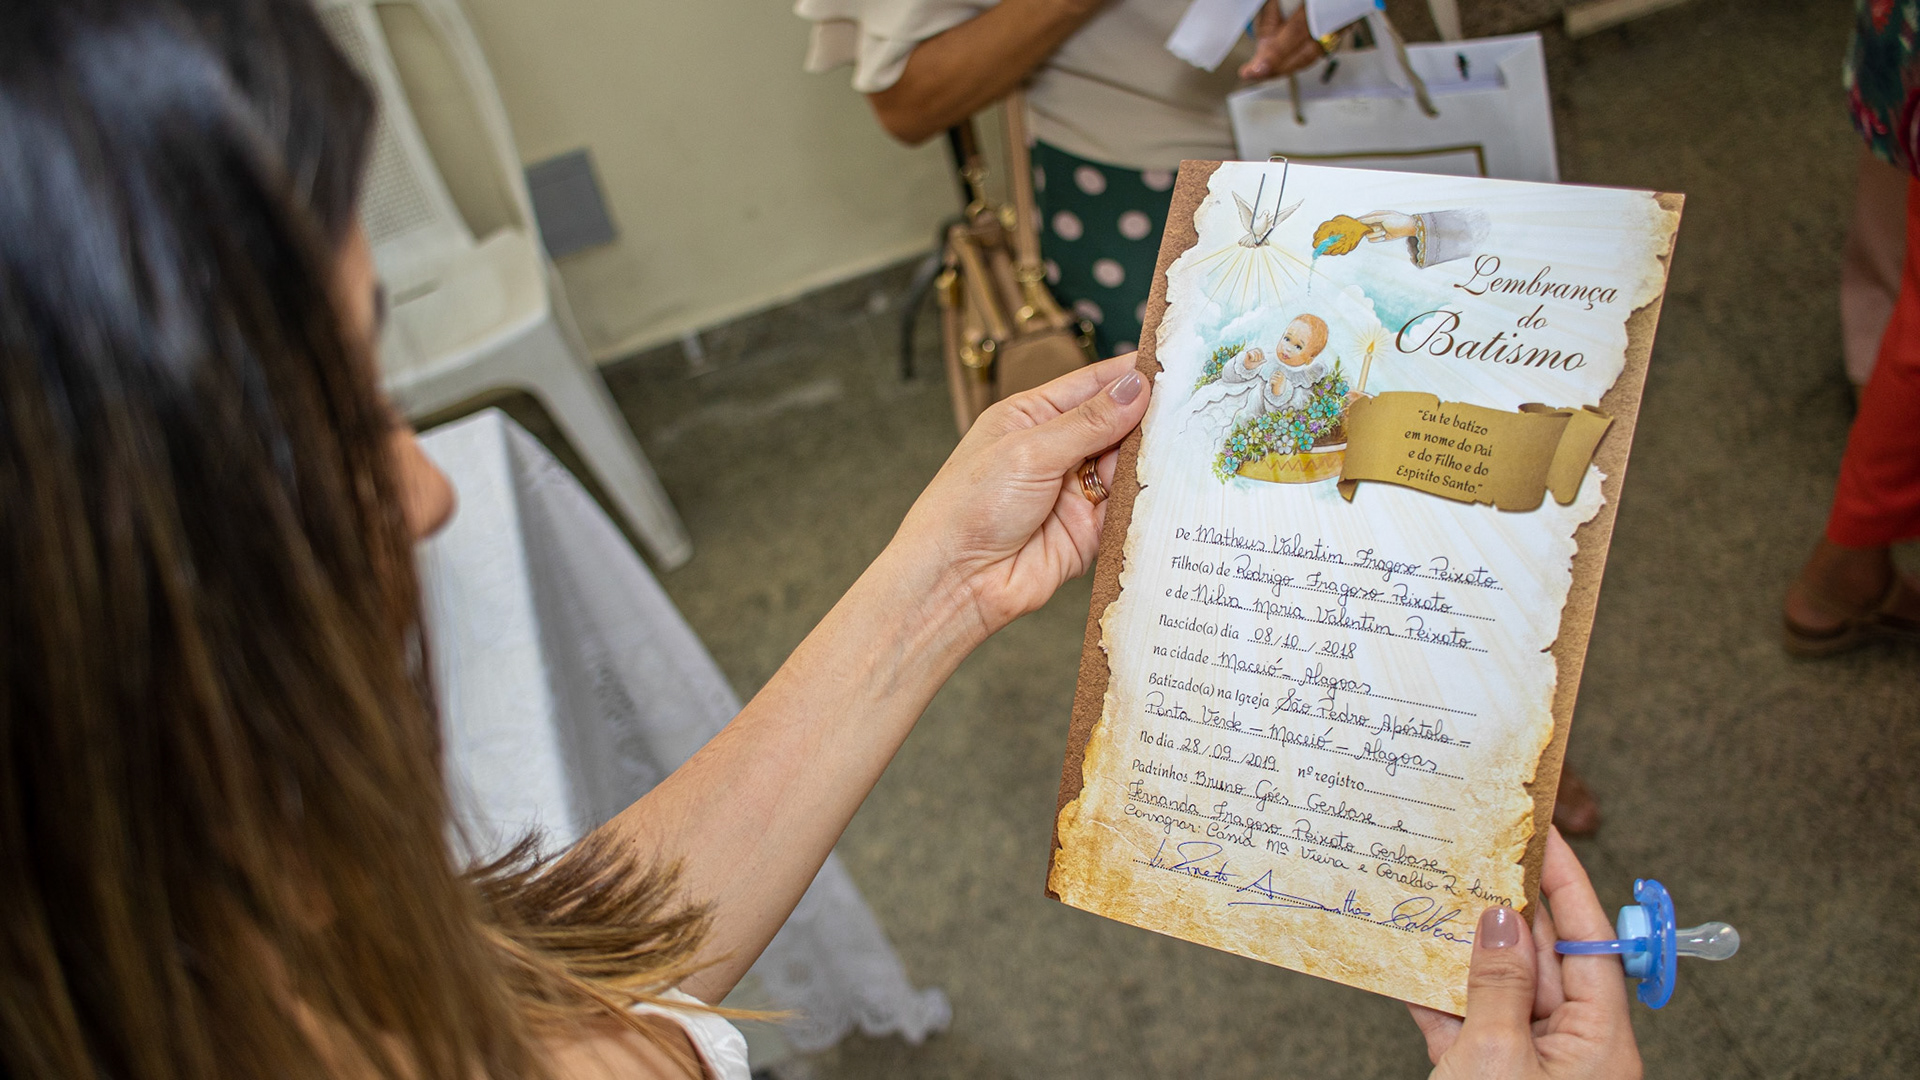 Lembrança
do
Batismo
"Eu te batizo
em nome do Pai
e do Filho e do
Espírito Santo."
De Matheus Valentim Fragoso Peixoto
Filho(a) de Rodrigo Fragoso Peixoto
e de Nilva Maria Valentim Peixoto
Nascido(a) dia 08/10/2018
na cidade Maceió - Alagoas
Batizado(a) na Igreja São Pedro Apóstolo -
Ponta Verde - Maceió - Alagoas
No dia 28/09/2019 nº registro
Padrinhos Bruno Góes Gerbase e
Fernanda Fragoso Peixoto Gerbase
Consagrar: Cássia Mª Vieira e Geraldo R.